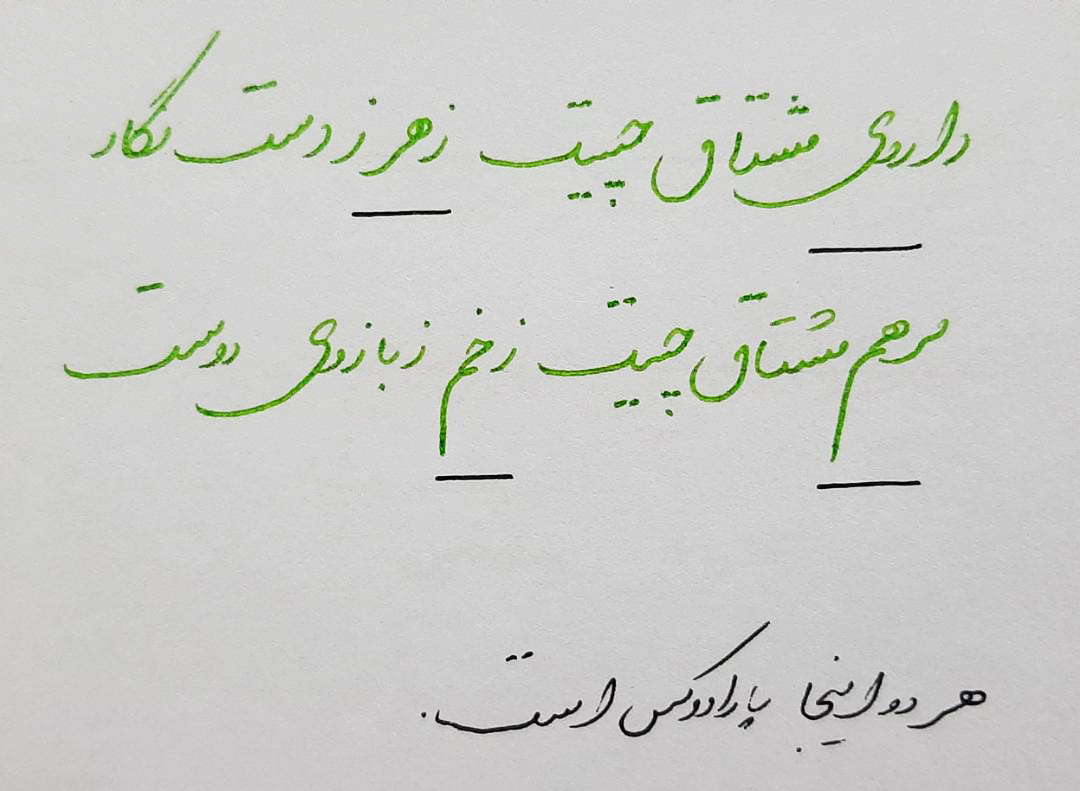 داروی مشتاق چیست زهر ز دست نگار
مرهم مشتاق چیست زخم ز بازوی دوست
هر دو اینجا پارادوکس است.